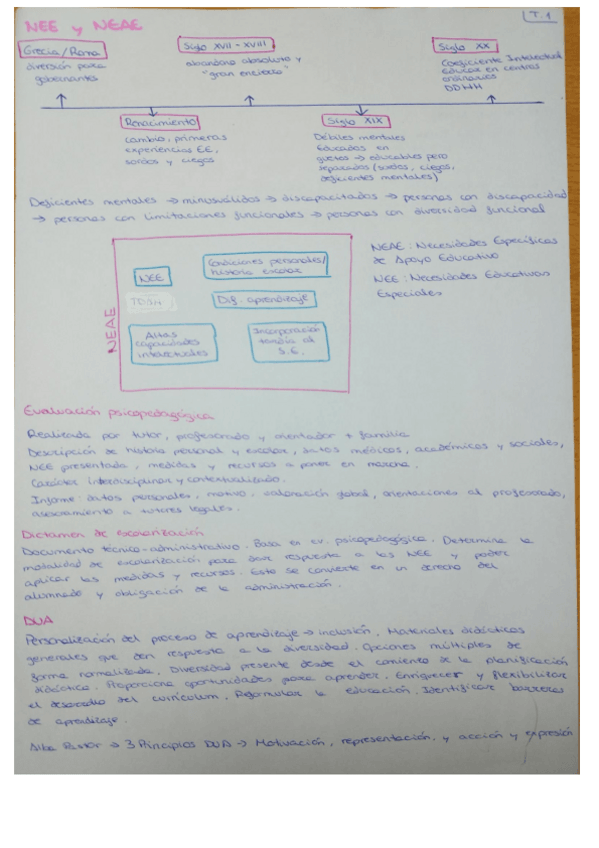 T.1
NEE y NEAE
Grecia/Roma
diversión para
gobernantes
Siglo XVII - XVIII
abandono absoluto y
"gran encierro"
Siglo XX
Coeficiente Intelectual
Educar en centros
ordinarios
DDHH
Renacimiento
cambio, primeras
experiencias EE,
sordos y ciegos
Siglo XIX
Débiles mentales
Educados en
guetos → educables pero
separados (sordos, ciegos,
deficientes mentales)
Deficientes mentales → minusválidos → discapacitados → personas con discapacidad
→ personas con limitaciones funcionales → personas con diversidad funcional
NEAE
NEE
Condiciones personales/
historia escolar
TDAH
Dif. aprendizaje
Altas
capacidades
intelectuales
Incorporación
tardía al
S.E.
NEAE: Necesidades Específicas
de Apoyo Educativo
NEE: Necesidades Educativas
Especiales
Evaluación psicopedagógica
Realizada por tutor, profesorado y orientador + familia
Descripción de historia personal y escolar, datos médicos, académicos y sociales,
NEE presentada, medidas y recursos a poner en marcha.
Carácter interdisciplinar y contextualizado.
Informe: datos personales, motivo, valoración global, orientaciones al profesorado,
asesoramiento a tutores legales.
Dictamen de escolarización
Documento técnico-administrativo. Basa en ev. psicopedagógica. Determina la
modalidad de escolarización para dar respuesta a las NEE y poder
aplicar las medidas y recursos. Esto se convierte en un derecho del
alumnado y obligación de la administración.
DUA
Personalización del proceso de aprendizaje → inclusión. Materiales didácticos
generales que den respuesta a la diversidad. Opciones múltiples de
forma normalizada. Diversidad presente desde el comienzo de la planificación
didáctica. Proporciona oportunidades para aprender. Enriquecer y flexibilizar
el desarrollo del currículum. Reformular la educación. Identificar barreras
de aprendizaje.
Alba Pastor → 3 Principios DUA → Motivación, representación, y acción y expresión